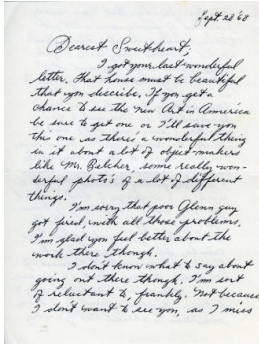 Sept 28 '68
Dearest Sweetheart;
I got your last wonderful
letter. That house must be beautiful
that you describe. If you get a
chance to see the New Art in America
be sure to get one or I'll save you
this one as there's a wonderful thing
in it about a lot of object makers
like Mr. Belcher, some really won-
derful photos of a lot of different
things.
I'm sorry that poor Glenn guy
got fired, with all those problems.
I'm glad you feel better about the
work there though.
I don't know what to say about
going out there though. I'm sort
of reluctant to, frankly. Not because
I don't want to see you, as I miss